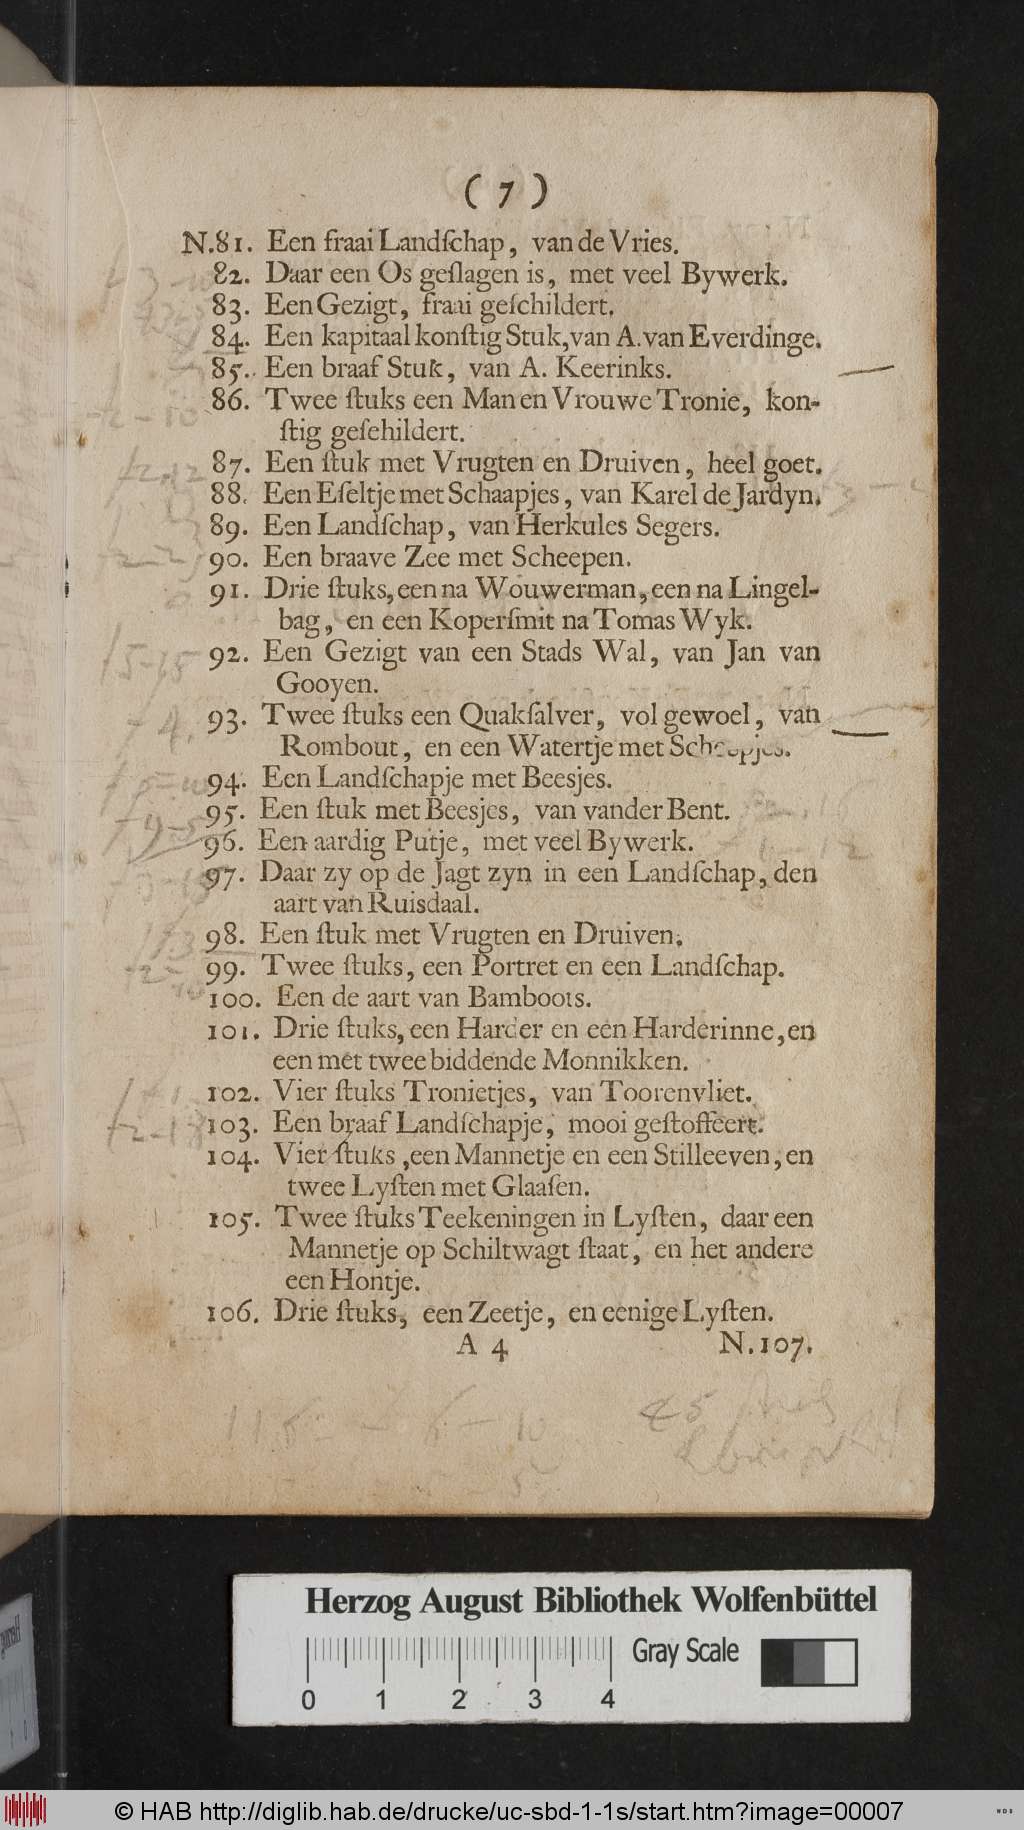 ( 7 )
N.81. Een fraai Landſchap, van de Vries.
82. Daar een Os geſlagen is, met veel Bywerk.
83. Een Gezigt, fraai geſchildert.
84. Een kapitaal konſtig Stuk, van A. van Everdinge.
85. Een braaf Stuk, van A. Keerinks.
86. Twee ſtuks een Man en Vrouwe Tronie, kon-
ſtig geſehildert.
87. Een ſtuk met Vrugten en Druiven, heel goet.
88. Een Eſeltje met Schaapjes, van Karel de Jardyn.
89. Een Landſchap, van Herkules Segers.
90. Een braave Zee met Scheepen.
91. Drie ſtuks, een na Wouwerman, een na Lingel-
bag, en een Koperſmit na Tomas Wyk.
92. Een Gezigt van een Stads Wal, van Jan van
Gooyen.
93. Twee ſtuks een Quakſalver, vol gewoel, van
Rombout, en een Watertje met Scheepjes.
94. Een Landſchapje met Beesjes.
95. Een ſtuk met Beesjes, van vander Bent.
96. Een aardig Putje, met veel Bywerk.
97. Daar zy op de Jagt zyn in een Landſchap, den
aart van Ruisdaal.
98. Een ſtuk met Vrugten en Druiven.
99. Twee ſtuks, een Portret en een Landſchap.
100. Een de aart van Bamboots.
101. Drie ſtuks, een Harder en een Harderinne, en
een met twee biddende Monnikken.
102. Vier ſtuks Tronietjes, van Toorenvliet.
103. Een braaf Landſchapje, mooi geſtoffeert.
104. Vier ſtuks, een Mannetje en een Stilleeven, en
twee Lyſten met Glaaſen.
105. Twee ſtuks Teekeningen in Lyſten, daar een
Mannetje op Schiltwagt ſtaat, en het andere
een Hontje.
106. Drie ſtuks, een Zeetje, en eenige Lyſten.
A 4 N. 107.
Herzog August Bibliothek Wolfenbüttel
Gray Scale
0 1 2 3 4
© HAB http://diglib.hab.de/drucke/uc-sbd-1-1s/start.htm?image=00007